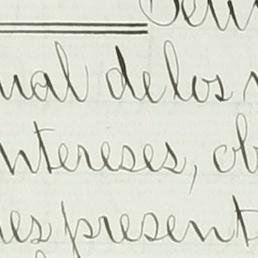 ual de los
ntereses, ob
es present